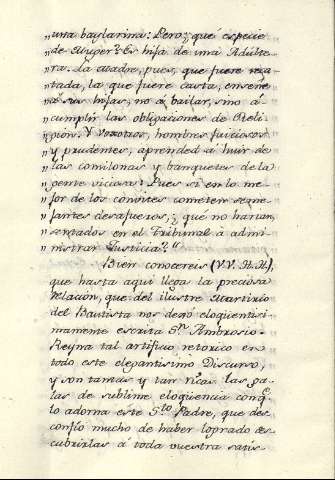 „una baylarina: Pero ¿que especie
„de Muger? Es hija de una Adulte-
„ra. La Madre, pues, que fuere reca-
„tada, la que fuere casta, enseñe
„a sus hijas, no á bailar, sino á
„cumplir las obligaciones de Reli-
„gion. Y vosotros, hombres juiciosos
„y prudentes, aprended á huir de
„las comilonas y banquetes de la
„gente viciosa: Pues si en lo me-
„jor de los convites cometen seme-
„jantes desafueros, ¿que no harian,
„sentados en el Tribunal á admi-
„nistrar Justicia?"
Bien conocereis (VV. HH),
que hasta aquí llega la preciosa
relacion, que del ilustre Martirio
del Bautista nos dejó eloqüentisi-
mamente escrita Sn. Ambrosio.
Reyna tal artificio retorico en
todo este elegantisimo Discurso,
y son tantas y tan ricas las ga-
las de sublime eloqüencia conq.
lo adorna este Sto. Padre, que des-
confio mucho de haber logrado des-
cubrirlas á toda vuestra satis-